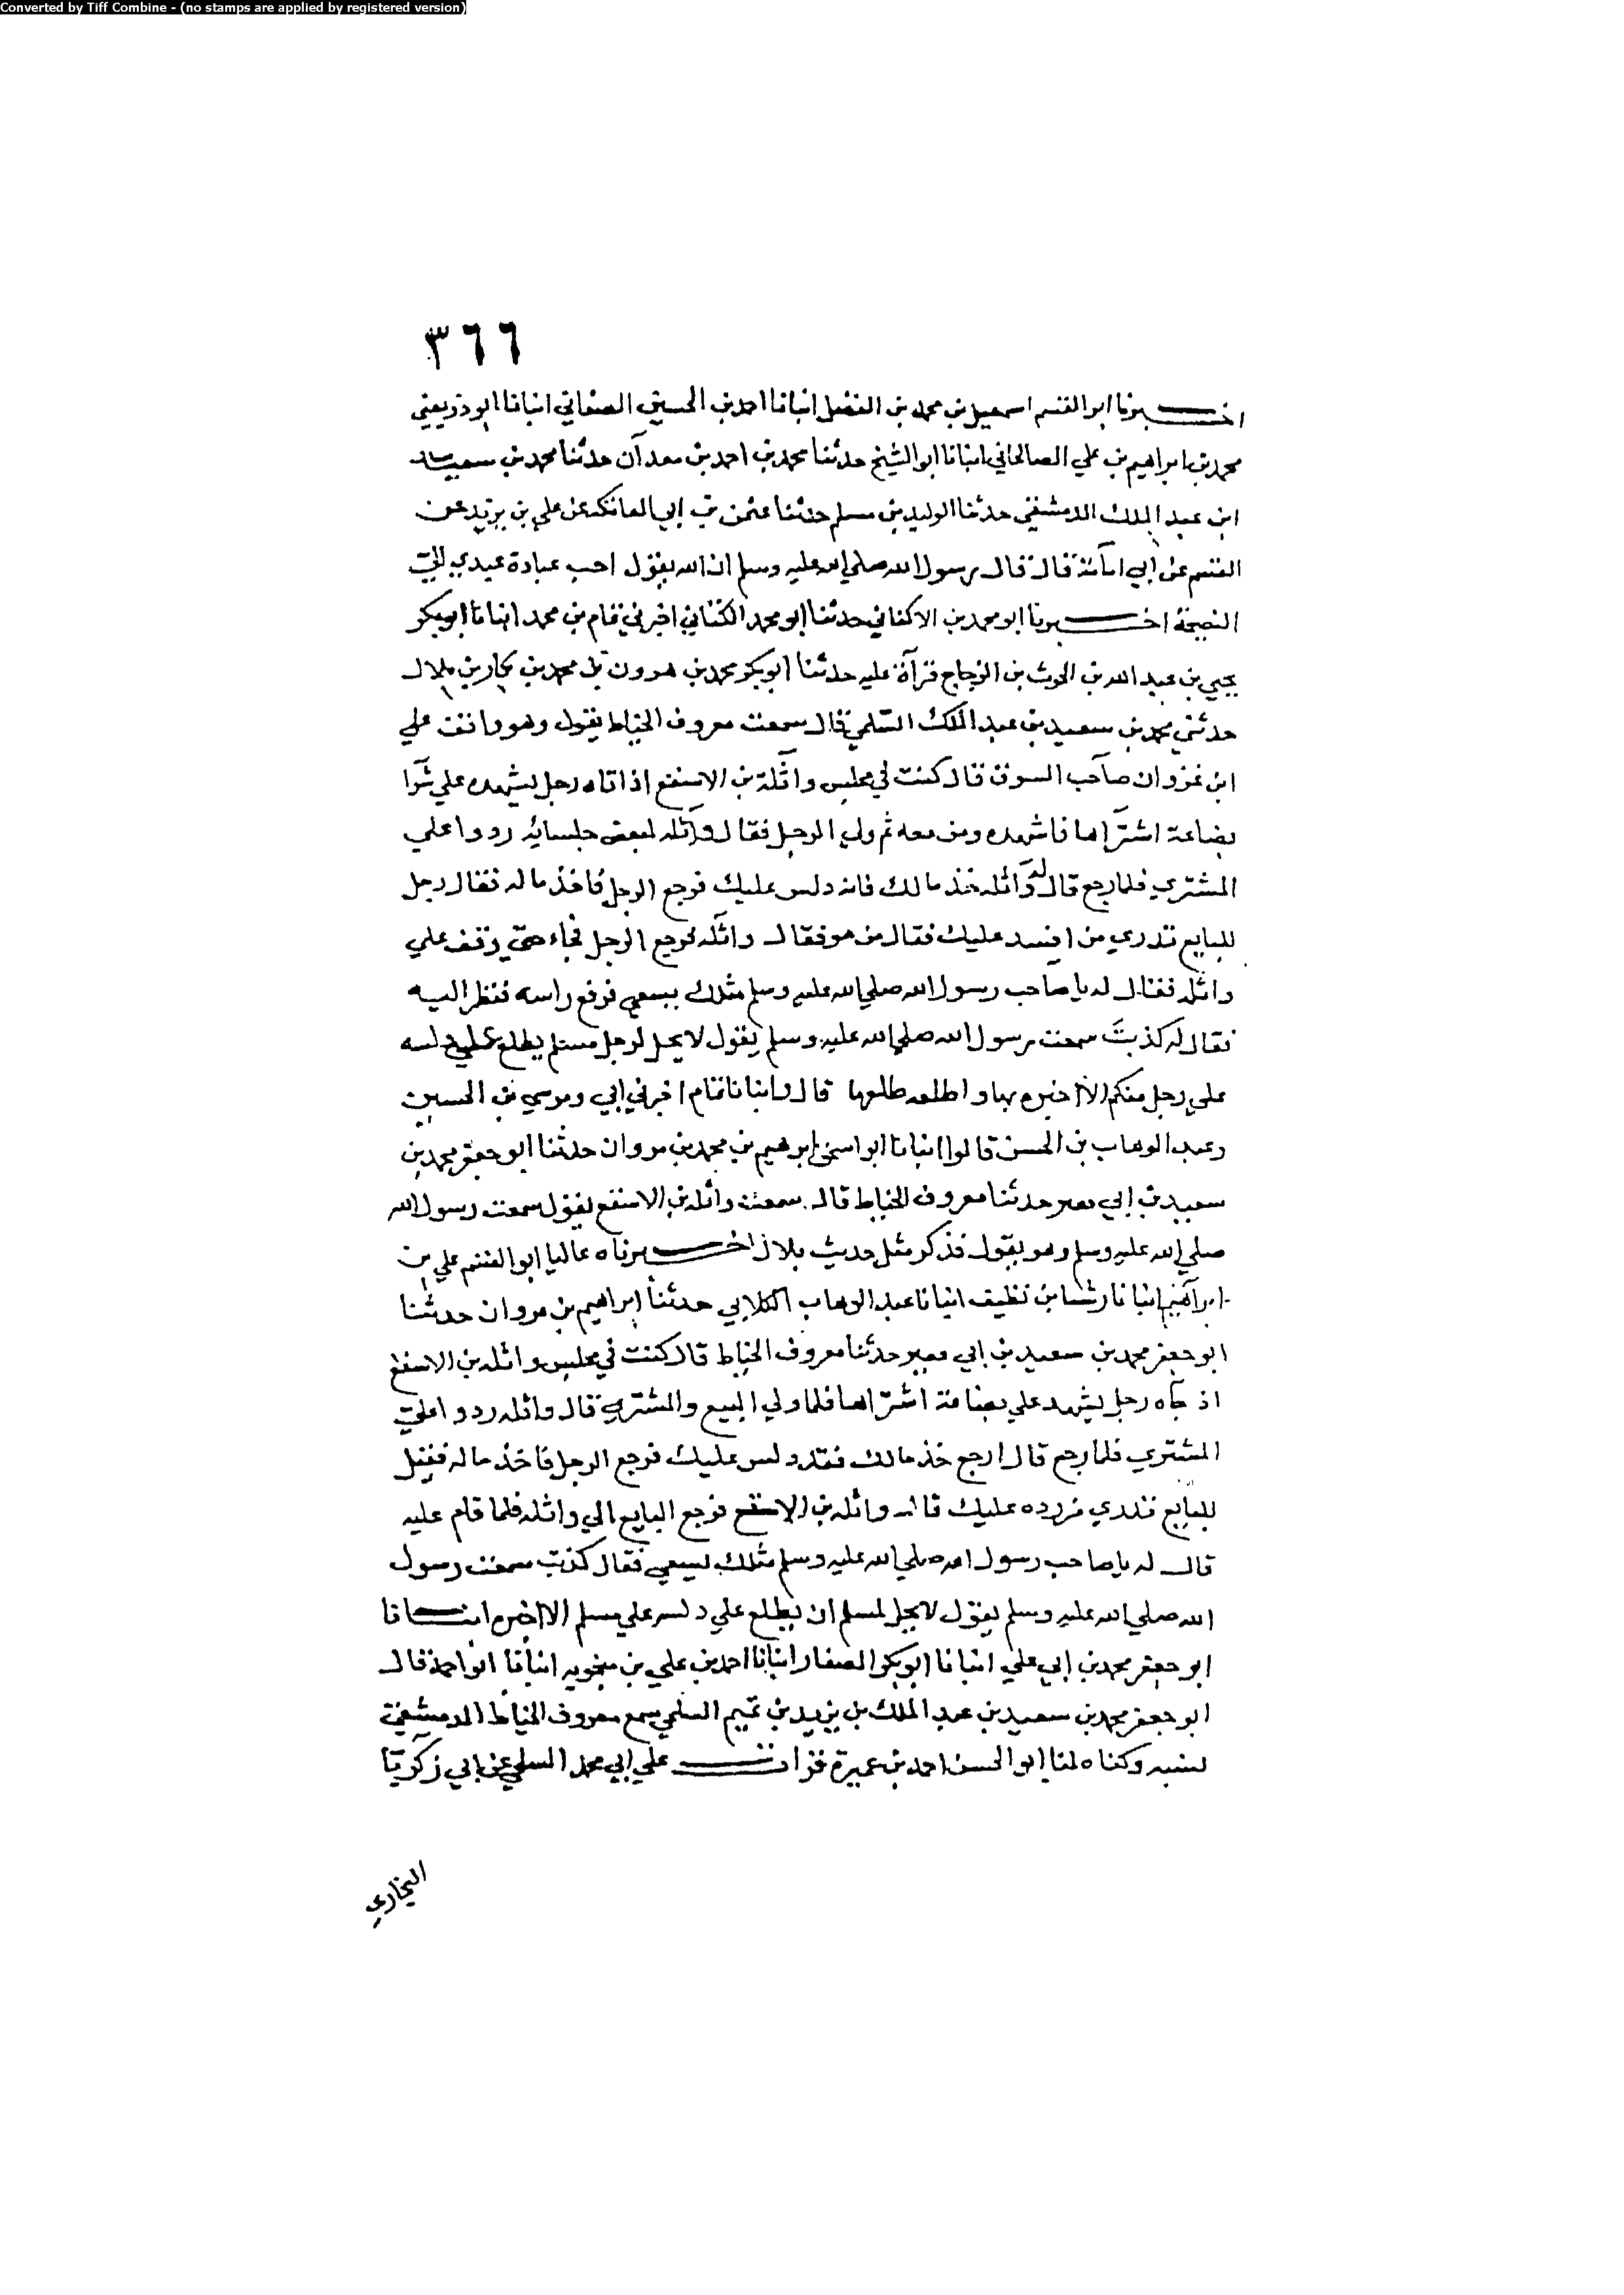 Converted by Tiff Combine - (no stamps are applied by registered version)
٣٦٦
اخـــبرنا ابو القسم اسمعيل بن محمد بن الفضل انبانا احمد بن الحسين الصفاني انبانا ابو ذر يعني
محمد بن ابراهيم بن علي الصالحاني انبانا ابو الشيخ حدثنا محمد بن احمد بن معدآن حدثنا محمد بن سعيد
ابن عبد الملك الدمشقي حدثنا الوليد بن مسلم حدثنا عثمن بن ابي العاتكه عن علي بن يزيد عن
القسم عن ابي امآمة قال قال رسول الله صلي الله عليه وسلم ان الله يقول احب عبادة عبدي اليّ
النصيحة اخـــبرنا ابو محمد بن الاكفاني حدثنا ابو محمد الكتاني اخبرني تمام بن محمد انبانا ابو بكر
يحيي بن عبد الله بن الحرث بن الزجاج قرآة عليه حدثنا ابو بكر محمد بن هرون بن محمد بن بكار بن بلال
حدثني محمد بن سعيد بن عبد الملك السّلمي قال سمعت معروف الخياط يقول وهو واقف علي
ابن غزوان صاحب السوق قال كنت في مجلس واثلة بن الاسقع اذ اتاه رجل ليشهده علي شرا
بضاعة اشترٓاها فاشهده ومن معه ثم ولي الرجل فقال واثله لبعض جلسائه ردوا علي
المشتري فلما رجع قال له واثله خذ مالك فانه دلس عليك فرجع الرجل فاخذ ماله فقال رجل
للبايع تدري من افسد عليك فقال من هو فقال واثله فرجع الرجل فجاء حتى وقف علي
واثله فقال له يا صاحب رسول الله صلي الله عليه وسلم مثلك يسعي فرفع راسه فنظر اليه
فقال له كذبتَ سمعت رسول الله صلي الله عليه وسلم يقول لا يحل لرجل مسلم يطلع علي دلسه
علي رجل منكم الا اخبره بها و اطلعه طلعها قال وانبانا تمام اخبرني ابي وموسي بن الحسين
وعبد الوهاب بن الحسن قالوا انبانا ابو اسحق ابرهيم بن محمد بن مروان حدثنا ابو جعفر محمد بن
سعيد بن ابي حدثنا معروف الخياط قال سمعت واثله بن الاسقع يقول سمعت رسول الله
صلي الله عليه وسلم وهو يقول فذكر مثل حديث بلال اخـــبرناه عاليا ابو القسم علي بن
ابرآهيم انبانا رشا بن نظيف انبانا عبد الوهاب الكلابي حدثنا ابراهيم بن مروان حدثنا
ابو جعفر محمد بن سعيد بن ابي حدثنا معروف الخياط قال كنت في مجلس واثله بن الاسقع
اذ جآه رجل ليشهد علي بضاعة اشترٓاها فلما ولي البيع والمشتري قال واثله ردوا عليّ
المشتري فلما رجع قال ارجع خذ مالك فقد دلس عليك فرجع الرجل فاخذ ماله فقيل
للبايع تدري من رده عليك قال واثله بن الاسقع فرجع البايع الي واثله فلما قام عليه
قال له يا صاحب رسول الله صلي الله عليه وسلم مثلك يسعي فقال كذبت سمعت رسول
الله صلي الله عليه وسلم يقول لا يحل لمسلم ان يطلع علي دلس علي مسلم الا اخبره انبـــانا
ابو جعفر محمد بن ابي علي انبانا ابو بكر الصفار انبانا احمد بن علي بن منجويه انبانا ابو احمد قال
ابو جعفر محمد بن سعيد بن عبد الملك بن يزيد بن تميم السلمي سمع معروف الخياط الدمشقي
نسبه وكناه لنا ابو الحسن احمد بن عميرة قرات علي ابي محمد السلمي عن ابي زكريّا
البخاري